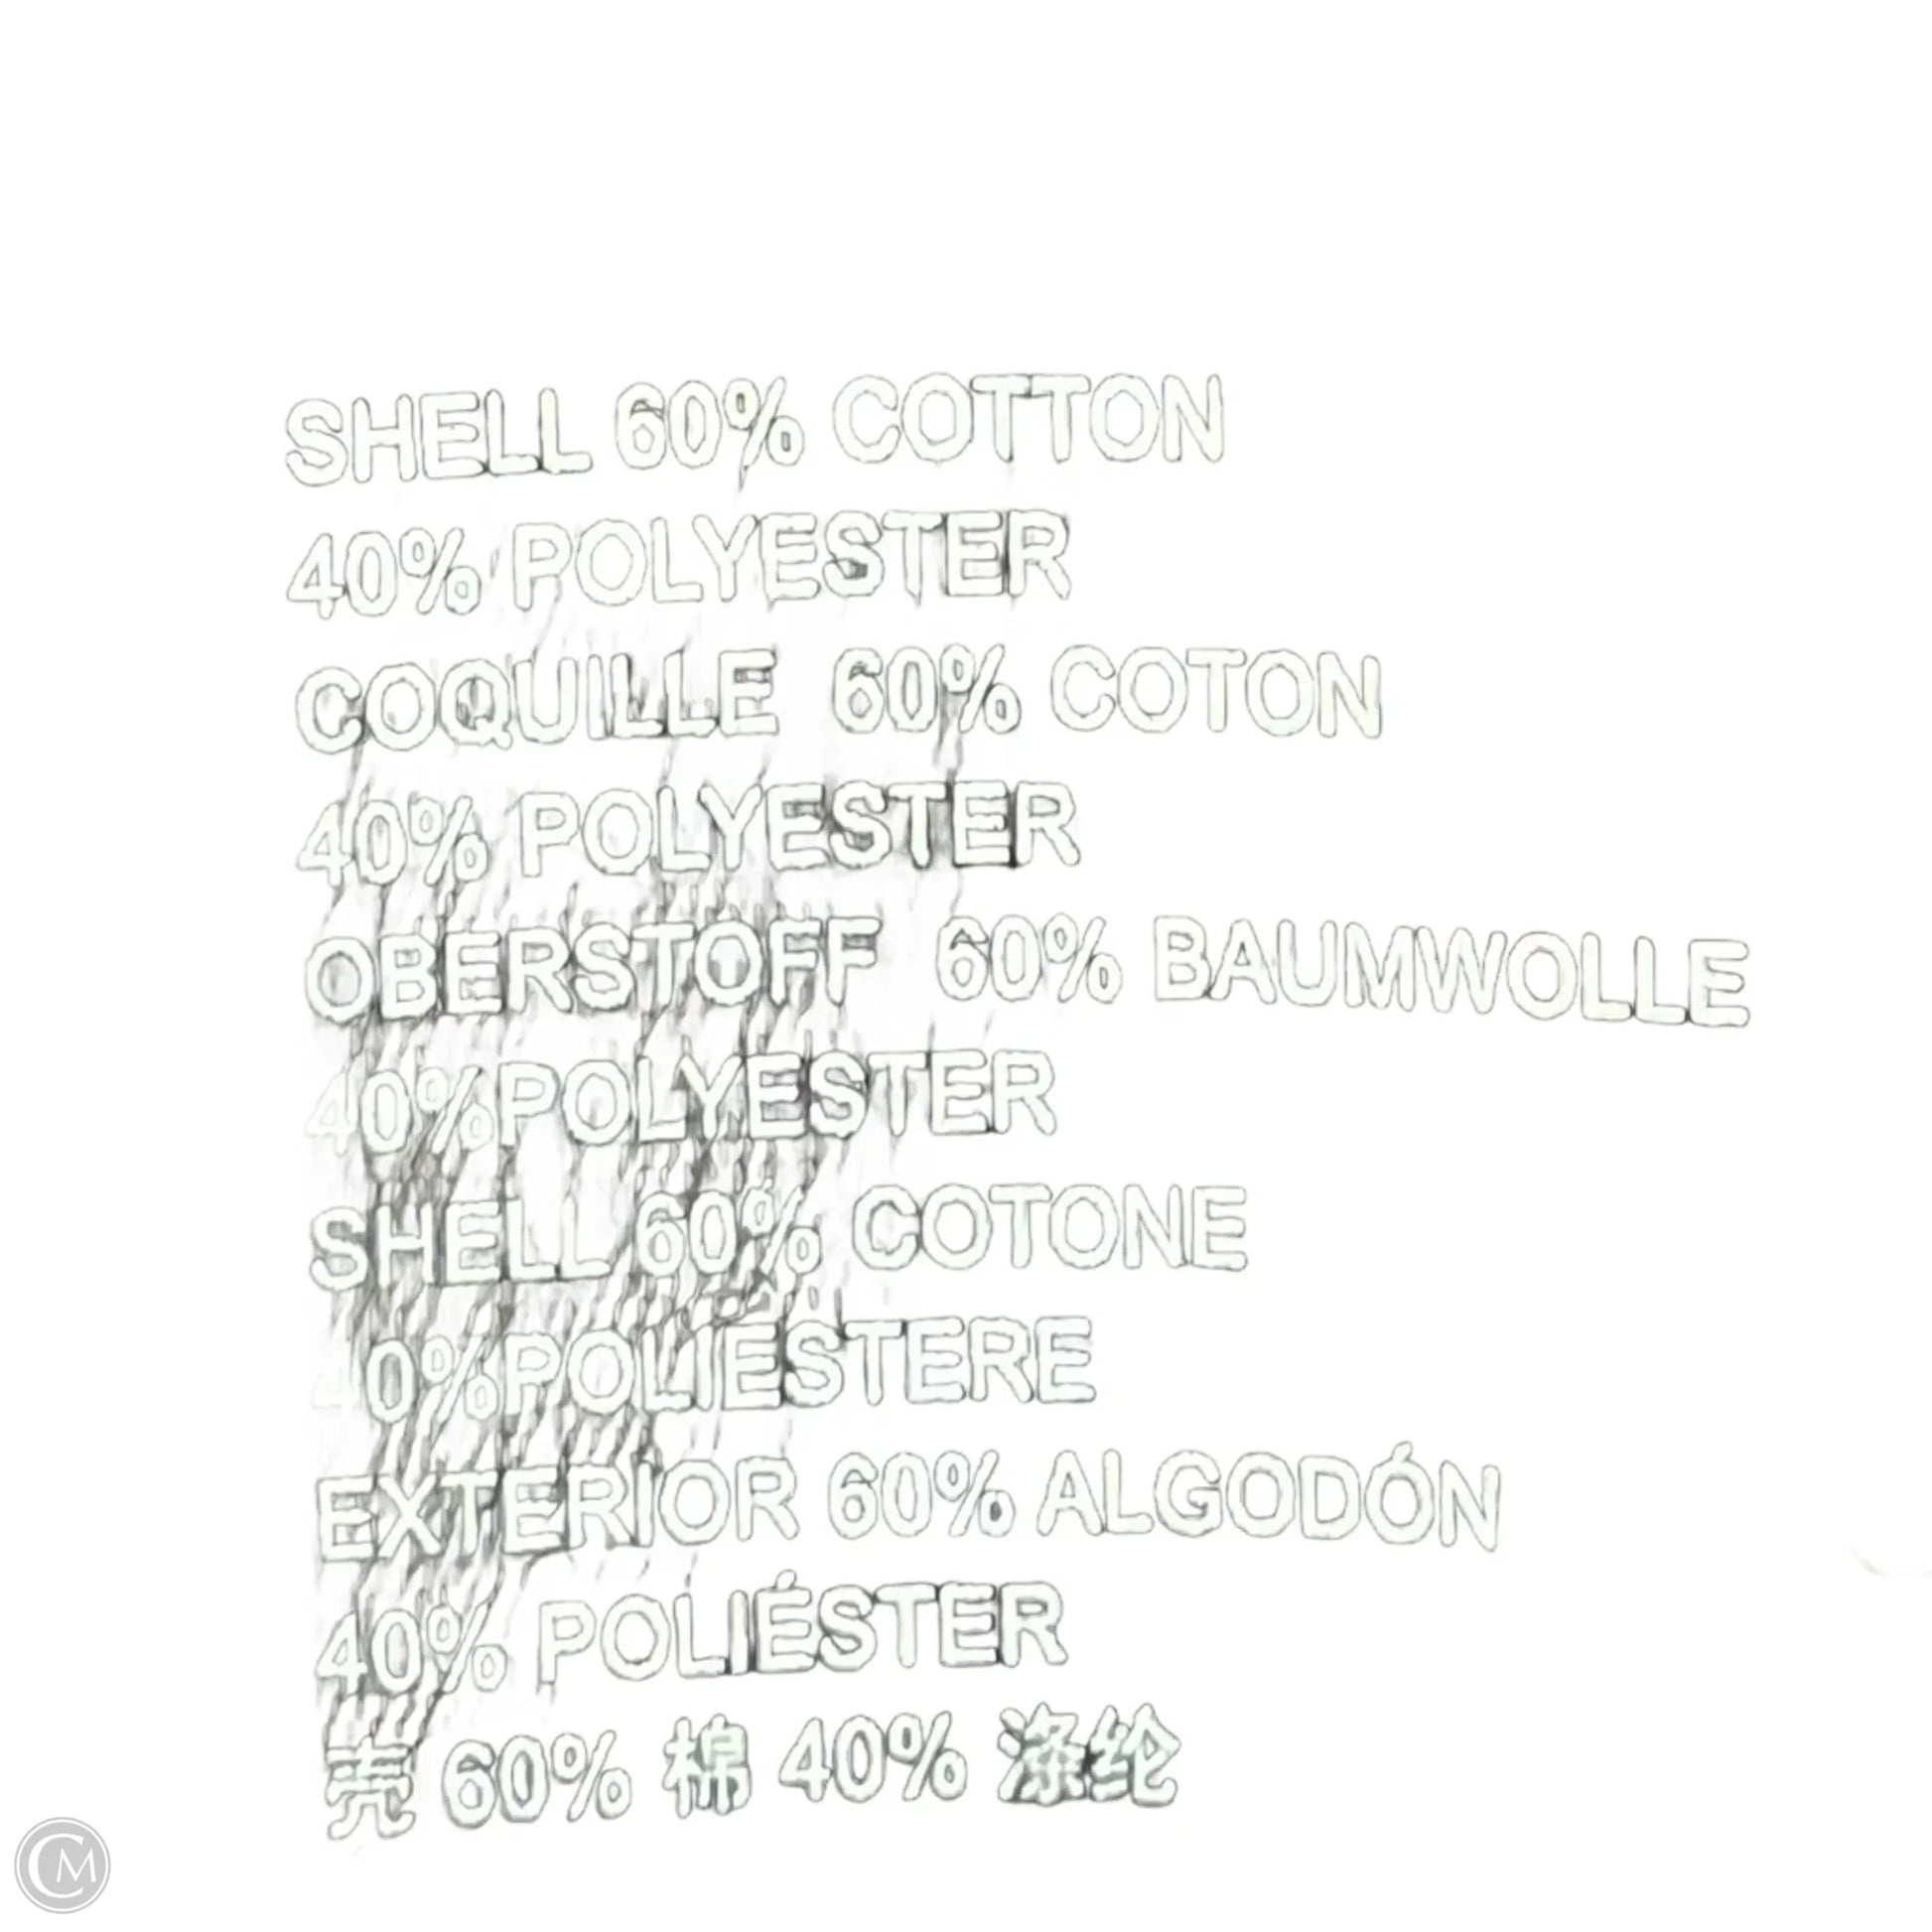 SHELL 60% COTTON
40% POLYESTER
COQUILLE 60% COTON
40% POLYESTER
OBERSTOFF 60% BAUMWOLLE
40%POLYESTER
SHELL 60% COTONE
40%POLIESTERE
EXTERIOR 60% ALGODÓN
40% POLIÉSTER
壳 60% 棉 40% 涤纶
CM